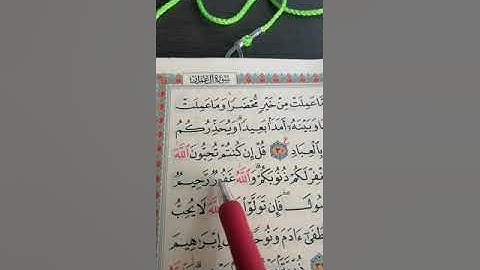 سُورَةُ آلِ عِمْرَانَ
مَّا عَمِلَتْ مِنْ خَيْرٍ مُّحْضَرًا وَمَا عَمِلَتْ
وَبَيْنَهُۥٓ أَمَدَۢا بَعِيدًا ۗ وَيُحَذِّرُكُمُ
بِٱلْعِبَادِ ٣٠ قُلْ إِن كُنتُمْ تُحِبُّونَ ٱللَّهَ
لَكُمْ ذُنُوبَكُمْ ۗ وَٱللَّهُ غَفُورٌ رَّحِيمٌ
فَإِن تَوَلَّوْا۟ ٱللَّهَ لَا يُحِبُّ
ءَادَمَ وَنُوحًا إِبْرَٰهِيمَ
ذُرِّيَّةًۢ